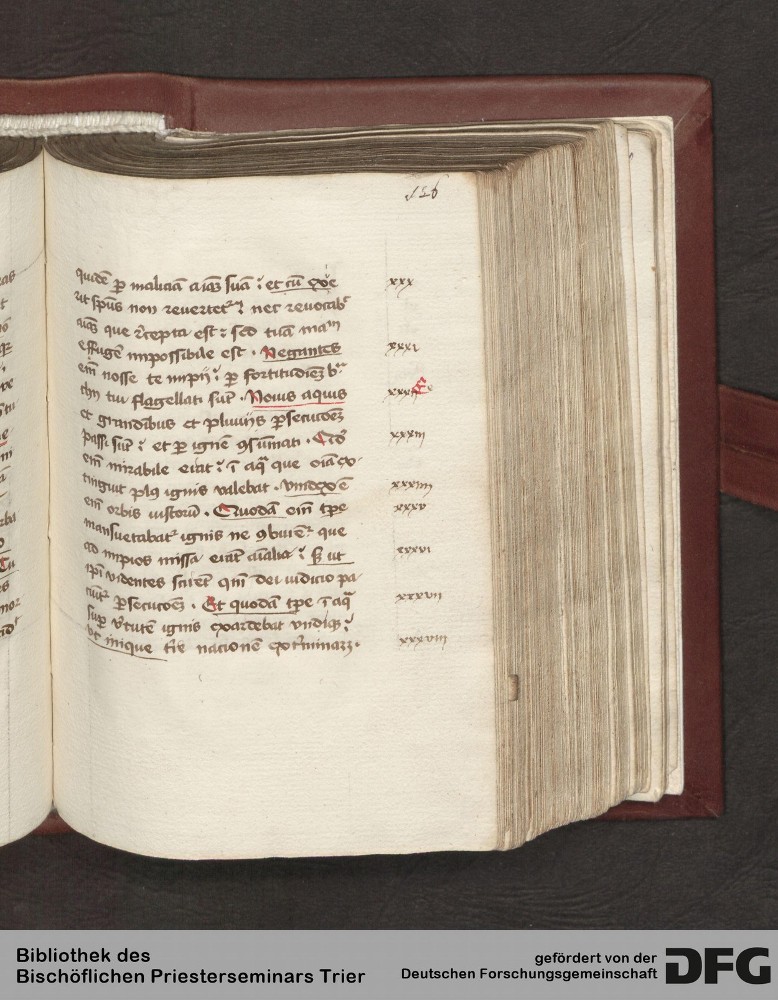 126
quidē p̄ maliciā aīaȝ suā : et cū exie
rit spūs non revertetᵘ : nec revocabᵗ
aīaȝ que recepta est : sed tuā manū
effuge impossibile est . Negantes
em̄ nosse te impij : p̄ fortitudīeȝ br̄a
chij tui flagellati sūt . Novis aquis
et grandibus et pluvijs p̄secutōeȝ
passi sūt : et p̄ ignē ꝯsūmati . Qd̓
em̄ mirabile erat : ī aq̄ que oīa ex
tinguit plꝰ ignis valebat . vindex ē
em̄ orbis iustorū . Quodā em̄ tp̄e
mansuetabatᵘ ignis ne ꝯburerētᵘ que
ad impios missa erāt aīalia : S̄ ut
ipī videntes scirēt qm̄ dei iudicio pa
tiūtᵘ p̄secutōeȝ . Et quodā tp̄e ī aq̄
sup̄ v̓tutē ignis exardebat vndiqȝ :
vt inique tr̄e nacionē ext̓minaꝫ .
xxx
xxxi
xxxii
xxxiii
xxxiiii
xxxv
xxxvi
xxxvii
xxxviii
Bibliothek des
Bischöflichen Priesterseminars Trier
gefördert von der
Deutschen Forschungsgemeinschaft
DFG